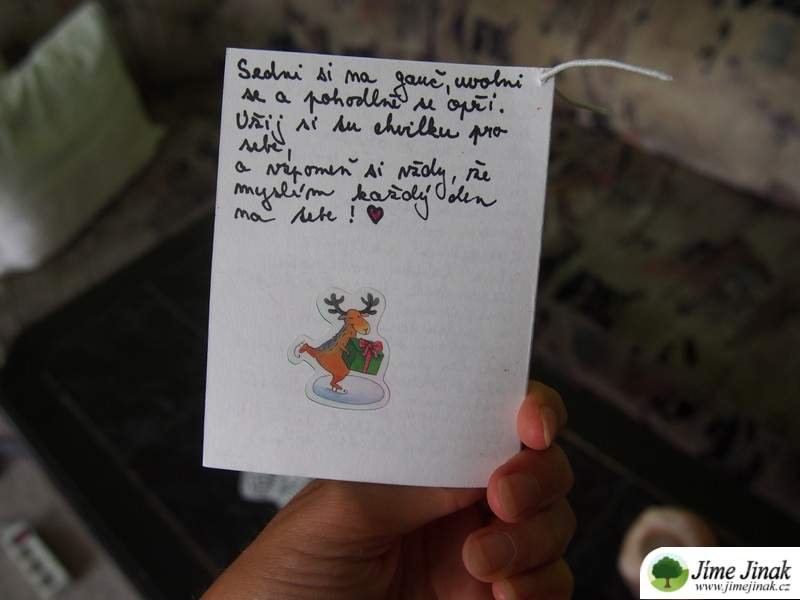 Sedni si na gauč, uvolni
se a pohodlně se opři.
Užij si tu chvilku pro
sebe,
a vzpomeň si vždy, že
myslím každý den
na sebe! ♥
Jíme Jinak
www.jimejinak.cz